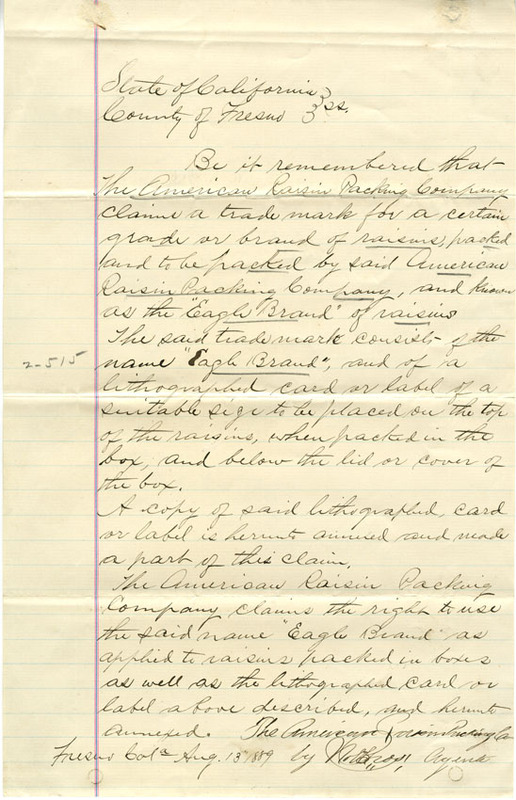 State of California } ss.
County of Fresno }
Be it remembered that
The American Raisin Packing Company
claims a trade mark for a certain
grade or brand of raisins, packed
and to be packed by said American
Raisin Packing Company, and known
as the "Eagle Brand" of raisins
The said trade mark consists of the
name "Eagle Brand", and of a
2-515
lithographed card or label of a
suitable size to be placed on the top
of the raisins, when packed in the
box, and below the lid or cover of
the box.
A copy of said lithographed card
or label is hereunto annexed and made
a part of this claim.
The American Raisin Packing
Company claims the right to use
the said name "Eagle Brand" as
applied to raisins packed in boxes
as well as the lithographed card or
label above described, and hereunto
annexed. The American Raisin Packing Co
Fresno Aug. 13 1889 by Agent